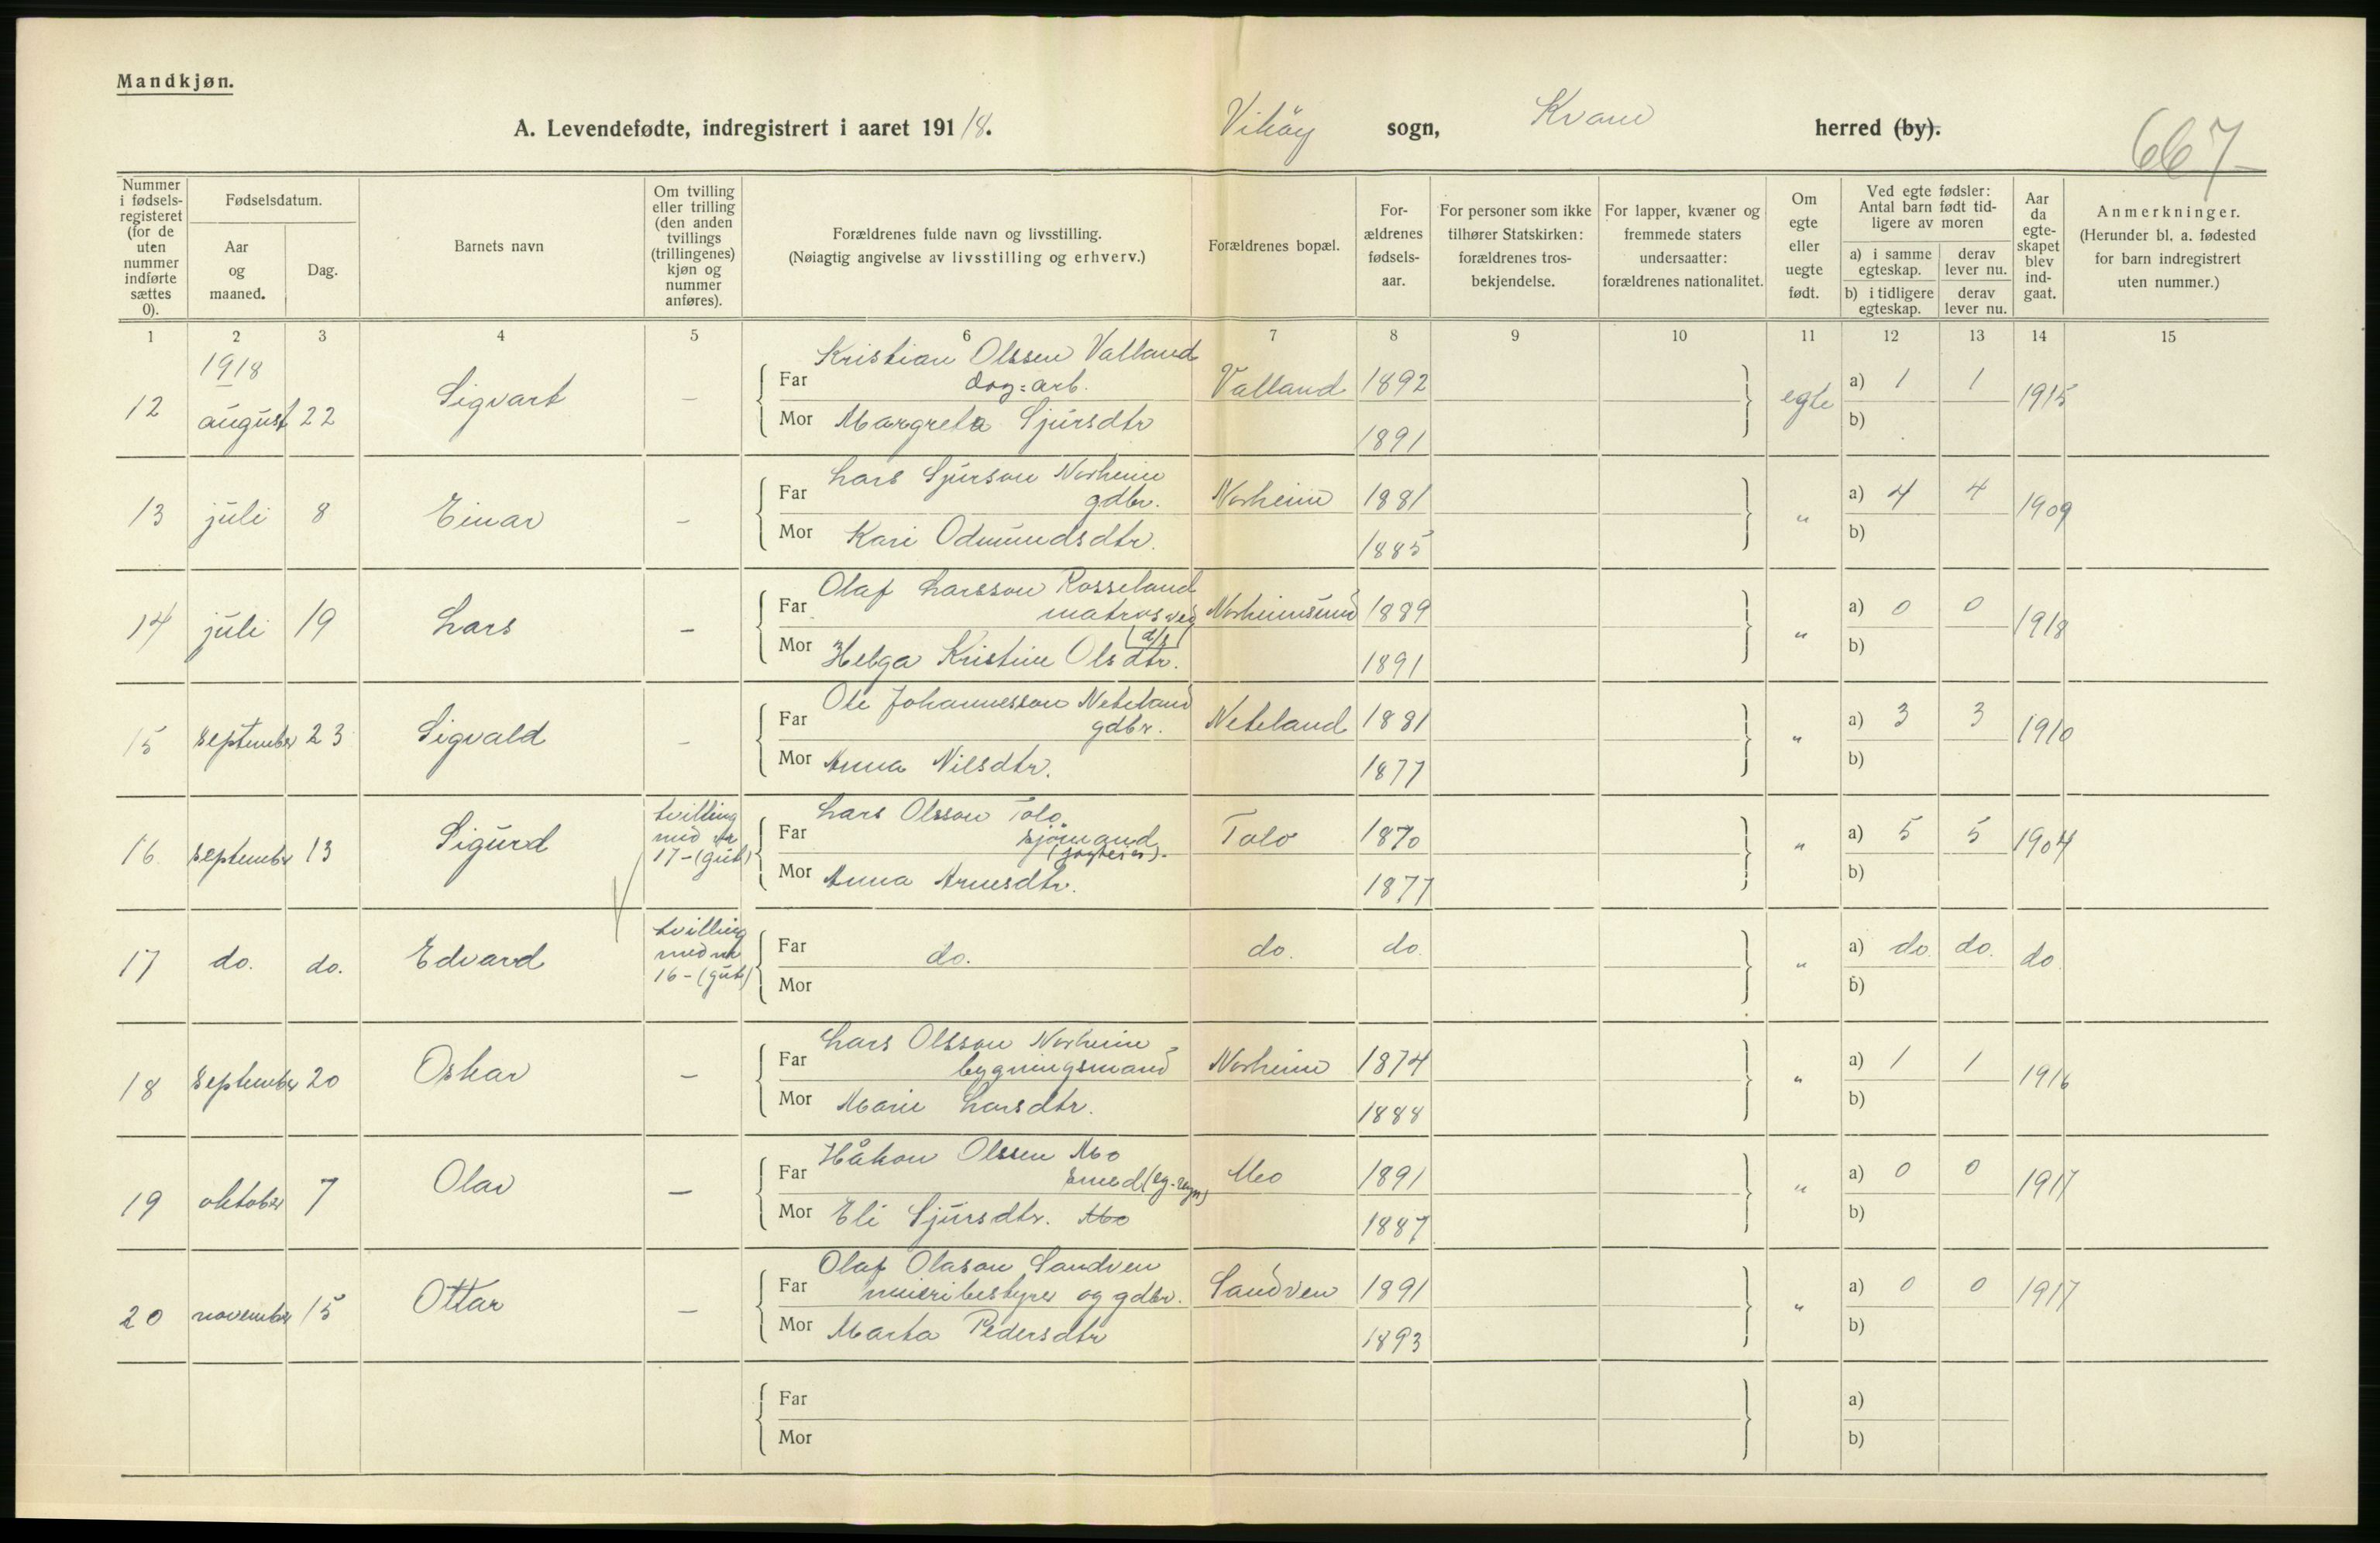 Mandkjøn.
A. Levendefødte, indregistrert i aaret 1918. Viköy sogn, Kvam herred (by).
667
Nummer i fødsels-registeret (for de uten nummer indførte sættes 0).
Fødselsdatum.
Aar og maaned.
Dag.
Barnets navn
Om tvilling eller trilling (den anden tvillings (trillingenes) kjøn og nummer anføres).
Forældrenes fulde navn og livsstilling.
(Nøiagtig angivelse av livsstilling og erhverv.)
Forældrenes bopæl.
For-ældrenes fødsels-aar.
For personer som ikke tilhører Statskirken: forældrenes tros-bekjendelse.
For lapper, kvæner og fremmede staters undersaatter: forældrenes nationalitet.
Om egte eller uegte født.
Ved egte fødsler: Antal barn født tid-ligere av moren
a) i samme egteskap. derav lever nu.
b) i tidligere egteskap. derav lever nu.
Aar da egte-skapet blev ind-gaat.
Anmerkninger.
(Herunder bl. a. fødested for barn indregistrert uten nummer.)
1 2 3 4 5 6 7 8 9 10 11 12 13 14 15
1918
Kristian Olssen Valland
12 august 22 Sigvart – Far dag=arb. Valland 1892 egte a) 1 1 1915
Mor Margreta Sjursdtr 1891 b)
Lars Sjurson Norheim
13 juli 8 Einar – Far gdbr. Norheim 1881 " a) 4 4 1909
Mor Kari Odmundsdtr. 1885 b)
Olaf Larsson Rosseland
14 juli 19 Lars – Far matros ved Norheimsund 1889 " a) 0 0 1918
(d/s)
Mor Helga Kristine Olsdtr. 1891 b)
Ole Johannesson Neteland
15 september 23 Sigvald – Far gdbr. Neteland 1881 " a) 3 3 1910
Mor Anna Nilsdtr. 1877 b)
Lars Olsson Tolo
16 september 13 Sigurd tvilling med nr 17-(gut) Far sjömand Tolo 1870 " a) 5 5 1904
(jagteier).
Mor Anna Arnesdtr. 1877 b)
17 do. do. Edvard tvilling med nr 16-(gut) Far do. do. do " a) do. do. do
Mor b)
Lars Olsson Norheim
18 september 20 Oskar – Far bygningsmand Norheim 1874 " a) 1 1 1916
Mor Marie Larsdtr. 1888 b)
Håkon Olssen Mo
19 oktober 7 Olav – Far smed Mo 1891 " a) 0 0 1917
Mor Eli Sjursdtr. Mo 1887 b)
Olaf Olason Sandven
20 november 15 Ottar – Far meieribestyrer og gdbr. Sandven 1891 " a) 0 0 1917
Mor Marta Pedersdtr 1893 b)
Far a)
Mor b)